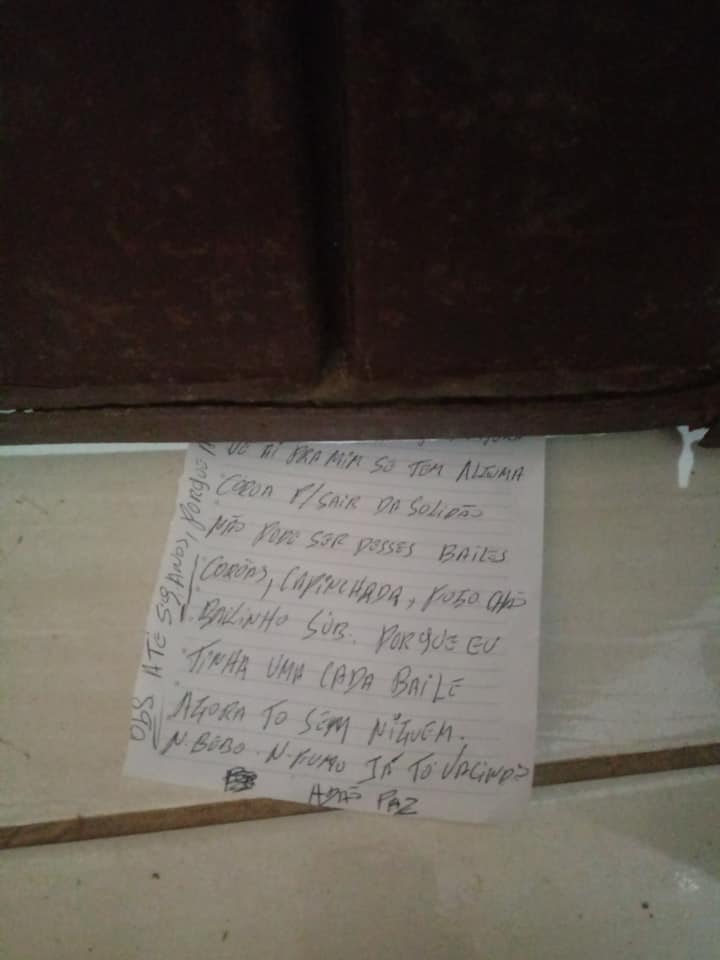 VE AI PRA MIM SE TEM ALGUMA
COROA P/ SAIR DA SOLIDÃO
NÃO PODE SER DESSES BAILES
COROAS, CAPINCHADA, PUXO
BAILINHO SUB. PORQUE EU
TINHA UMA CADA BAILE
AGORA TO SEM NIGUEM.
N. BEBO. N. FUMO JÁ TO VACINADO
ADÃO PAZ
OBS ATÉ ANOS, PORQUE